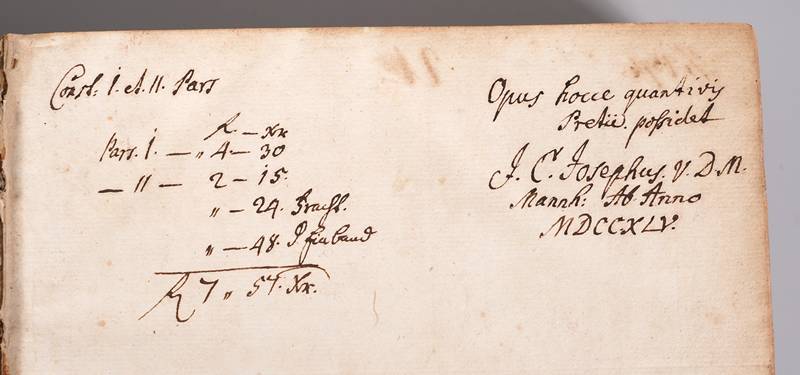 Const: I. et. II. Pars
fl. — Xr
Pars. I. — „ 4 — 30
— II — 2 — 15.
„ — 24. Fracht.
„ — 48. Einband
fl 7 „ 57. Xr.
Opus hocce quantivis
Pretii. possidet
J. C. Josephus. V. D. M.
Mannh: Ab Anno
MDCCXLV.